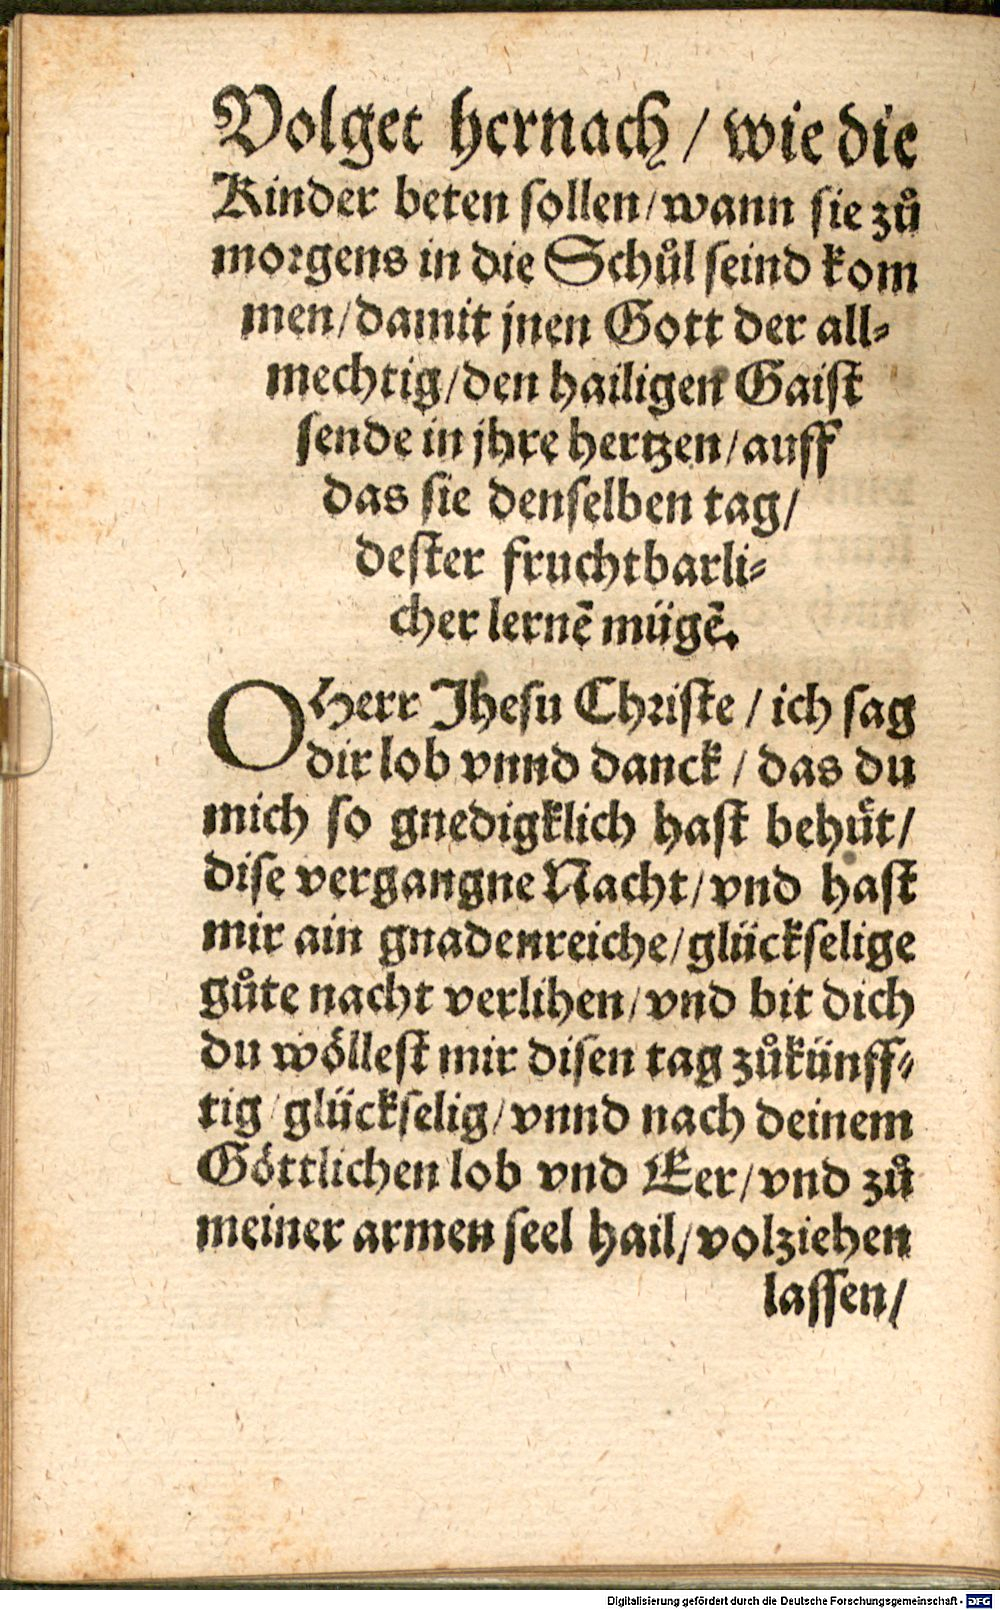 Volget hernach / wie die
Kinder beten sollen / wann sie zů
morgens in die Schůl seind kom
men / damit jnen Gott der all-
mechtig / den hailigen Gaist
sende in jhre hertzen / auff
das sie denselben tag /
dester fruchtbarli-
cher lernē mügē.
O Herr Jhesu Christe / ich sag
dir lob vnnd danck / das du
mich so gnedigklich hast behuͤt /
dise vergangne Nacht / vnd hast
mir ain gnadenreiche / glückselige
gůte nacht verlihen / vnd bit dich
du wöllest mir disen tag zůkünff-
tig / glückselig / vnnd nach deinem
Göttlichen lob vnd Eer / vnd zů
meiner armen seel hail / volziehen
lassen /
Digitalisierung gefördert durch die Deutsche Forschungsgemeinschaft - DFG